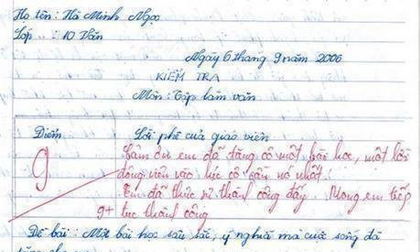 Họ tên : Hà Minh Ngọc
Lớp : 10 Văn
Ngày 6 tháng 9 năm 2006
KIỂM TRA
Môn : Tập làm văn
Điểm
Lời phê của giáo viên
9
Cảm ơn em đã tặng cô một bài học, một lời
động viên vào lúc cô cần nó nhất.
Em đã thực sự thành công đấy. Mong em tiếp
tục thành công.
9+
Đề bài : Một bài học sâu sắc, ý nghĩa mà cuộc sống đã